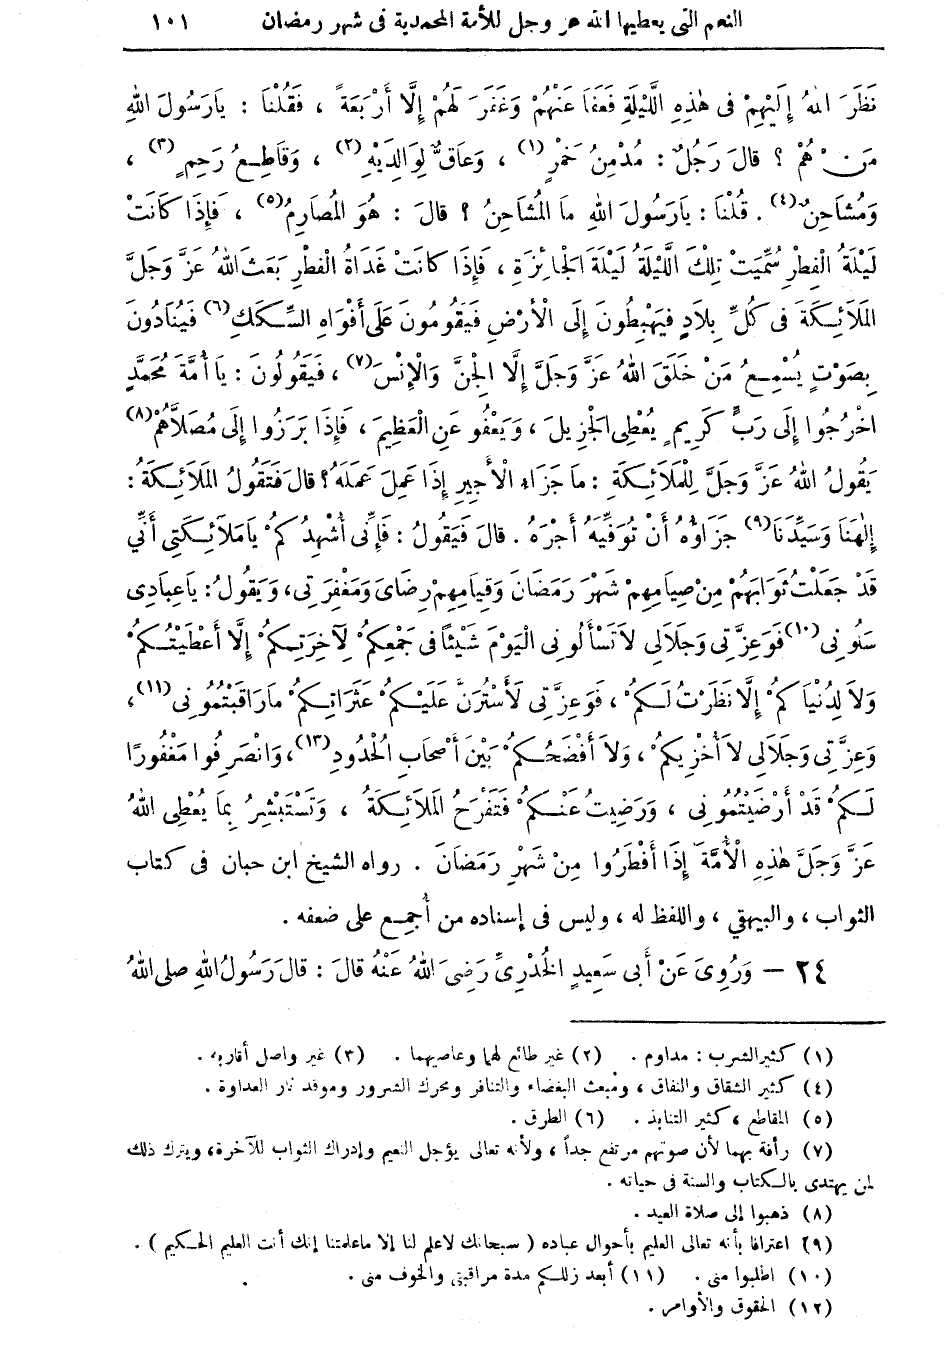 النعم التى يعطيها الله عز وجل للأمة المحمدية فى شهر رمضان ١٠١
نَظَرَ اللهُ إِلَيْهِمْ فى هٰذِهِ اللَّيْلَةِ فَعَفَا عَنْهُمْ وَغَفَرَ لَهُمْ إِلَّا أَرْبَعَةً ، فَقُلْنَا : يَارَسُولَ اللهِ
مَنْ هُمْ ؟ قالَ رَجُلٌ : مُدْمِنُ خَمْرٍ (١) ، وَعَاقٌّ لِوَالِدَيْهِ (٢) ، وَقَاطِعُ رَحِمٍ (٣) ،
وَمُشَاحِنٌ (٤) . قُلْنَا : يَارَسُولَ اللهِ ما المُشَاحِنُ ؟ قالَ : هُوَ المُصَارِمُ (٥) ، فَإِذَا كَانَتْ
لَيْلَةُ الْفِطْرِ سُمِّيَتْ تِلْكَ اللَّيْلَةُ لَيْلَةَ الجَائِزَةِ ، فَإِذَا كانَتْ غَدَاةُ الْفِطْرِ بَعَثَ اللهُ عَزَّ وَجَلَّ
المَلَائِكَةَ فى كُلِّ بِلَادٍ فَيَهْبِطُونَ إِلَى الْأَرْضِ فَيَقُومُونَ عَلَى أَفْوَاهِ السِّكَكِ (٦) فَيُنَادُونَ
بِصَوْتٍ يُسْمِعُ مَنْ خَلَقَ اللهُ عَزَّ وَجَلَّ إِلَّا الْجِنَّ وَالْإِنْسَ (٧) ، فَيَقُولُونَ : يَا أُمَّةَ مُحَمَّدٍ
اخْرُجُوا إِلَى رَبٍّ كَرِيمٍ يُعْطِى الجَزِيلَ ، وَيَعْفُو عَنِ الْعَظِيمَ ، فَإِذَا بَرَزُوا إِلَى مُصَلَّاهُمْ (٨)
يَقُولُ اللهُ عَزَّ وَجَلَّ لِلْمَلَائِكَةِ : مَا جَزَاءُ الْأَجِيرِ إِذَا عَمِلَ عَمَلَهُ ؟ قالَ فَتَقُولُ المَلَائِكَةُ :
إِلٰهَنَا وَسَيِّدَنَا (٩) جَزَاؤُهُ أَنْ تُوَفِّيَهُ أَجْرَهُ . قالَ فَيَقُولُ : فَإِنِّى أُشْهِدُ كُمْ يَامَلَائِكَتِى أَنِّي
قَدْ جَعَلْتُ ثَوَابَهُمْ مِنْ صِيَامِهِمْ شَهْرَ رَمَضَانَ وَقِيَامِهِمْ رِضَاىَ وَمَغْفِرَتِى، وَيَقُولُ: يَاعِبَادِى
سَلُونِى (١٠) فَوَعِزَّتِى وَجَلَالِى لَا تَسْأَلُونِى الْيَوْمَ شَيْئًا فى جَمْعِكُمْ لِآخِرَتِكُمْ إِلَّا أَعْطَيْتُكُمْ
وَلاَ لِدُنْيَاكُمْ إِلَّا نَظَرْتُ لَكُمْ ، فَوَعِزَّتِى لَأَسْتُرَنَّ عَلَيْكُمْ عَثَرَاتِكُمْ مَارَاقَبْتُمُونِى (١١) ،
وَعِزَّتِى وَجَلَالِى لاَ أُخْزِيكُمْ ، وَلاَ أَفْضَحُكُمْ بَيْنَ أَصْحَابِ الْحُدُودِ (١٣) ، وَانْصَرِفُوا مَغْفُورًا
لَكُمْ قَدْ أَرْضَيْتُمُونِى ، وَرَضِيتُ عَنْكُمْ فَتَفْرَحُ المَلَائِكَةُ ، وَتَسْتَبْشِرُ بِمَا يُعْطِى اللهُ
عَزَّ وَجَلَّ هٰذِهِ الْأُمَّةَ إِذَا أَفْطَرُوا مِنْ شَهْرِ رَمَضَانَ . رواه الشيخ ابن حبان فى كتاب
الثواب ، والبيهقي ، واللفظ له ، وليس فى إسناده من أُجمِع على ضعفه .
٢٤ — وَرُوِىَ عَنْ أَبى سَعِيدٍ الْخُدْرِىِّ رَضِىَ اللهُ عَنْهُ قالَ : قالَ رَسُولُ اللهِ صلى اللهُ
(١) كثير الشرب : مداوم . (٢) غير طائع لهما وعاصيهما . (٣) غير واصل أقاربه .
(٤) كثير الشقاق والنفاق ، ومُبعث البغضاء والتنافر ومحرك الشرور وموقد نار العداوة .
(٥) المقاطع ، كثير التنابذ . (٦) الطرق .
(٧) رأفة بهما لأن صوتهم مرتفع جداً ، ولأنه تعالى يؤجل النعيم وإدراك الثواب للآخرة، ويترك ذلك
لمن يهتدى بالكتاب والسنة فى حياته .
(٨) ذهبوا إلى صلاة العيد .
(٩) اعترافا بأنه تعالى العليم بأحوال عباده ( سبحانك لاعلم لنا إلا ماعلمتنا إنك أنت العليم الحكيم ) .
(١٠) اطلبوا منى . (١١) أبعد زللكم مدة مراقبتى والخوف منى .
(١٢) الحقوق والأوامر .